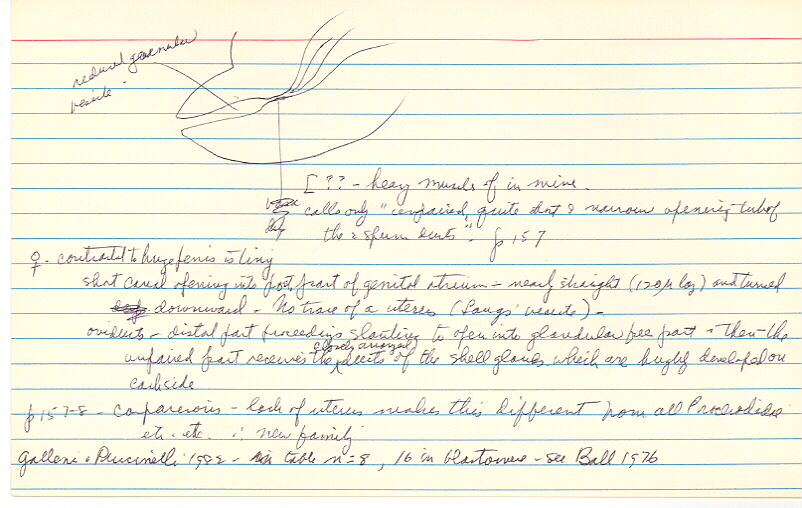 reduced granular
vesicle.
[ ?? - heavy muscle of in mine.
calls only "unpaired, quite short & narrow opening tube of
the 2 sperm ducts". p 157
♀ - contrasted to huge penis is tiny
short canal opening into post. part of genital atrium - nearly straight (120µ log) and turned
downward - No trace of a uterus (Lang's vesicle) -
oviducts - distal part proceeding slanting to open into glandular free part. Then the
unpaired part receives the closely arranged ducts of the shell glands which are hugely developed on
each side
p 157-8 - comparisons - lack of uterus makes this different from all Procerodidae
etc. etc. ∴ new family
Galleni & Puccinelli 1982 - in table n=8, 16 in blastomere - see Ball 1976